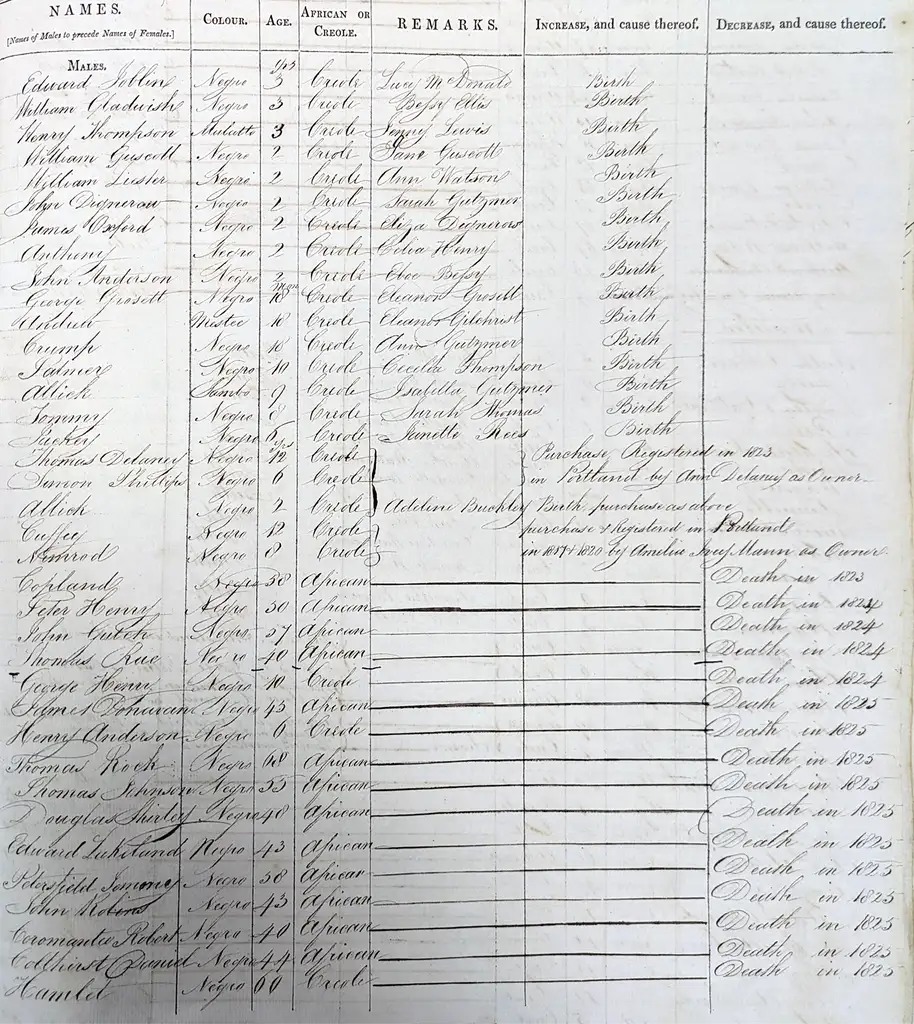 NAMES. COLOUR. AGE. AFRICAN OR CREOLE. REMARKS. INCREASE, and cause thereof. DECREASE, and cause thereof.
[Names of Males to precede Names of Females.]
MALES. yrs
Edward Joblin Negro 3 Creole Lucy McDonald Birth
William Gladwish Negro 3 Creole Bessy Ellis Birth
Henry Thompson Mulatto 3 Creole Jenny Lewis Birth
William Guscott Negro 2 Creole Jane Guscott Birth
William Lister Negro 2 Creole Ann Watson Birth
John Dignerow Negro 2 Creole Sarah Gutzmer Birth
James Oxford Negro 2 Creole Eliza Dignerow Birth
Anthony Negro 2 Creole Celia Henry Birth
John Anderson Negro 2 Creole Eboe Bessy Birth
mon
George Grosett Negro 18 Creole Eleanor Grosett Birth
Andrew Mustee 18 Creole Eleanor Gilchrist Birth
Crump Negro 18 Creole Ann Gutzmer Birth
Palmer Negro 10 Creole Cecelia Thompson Birth
Allick Sambo 9 Creole Isabella Gutzmer Birth
Tommy Negro 8 Creole Sarah Thomas Birth
Negro 6 Creole Janette Rees Birth
yrs
Thomas Delaney Negro 12 Creole Purchase, Registered in 1823
Phillips Negro 6 Creole in Portland by Ann Delaney as Owner
Allick Negro 2 Creole Adeline Buckley Birth, purchase as above
Cuffey Negro 12 Creole purchase & Registered in Portland
Nimrod Negro 8 Creole in 1817 & 1820 by Amelia Mann as Owner
Copland Negro 58 African Death in 1823
Peter Henry Negro 50 African Death in 1824
John Gutch Negro 57 African Death in 1824
Thomas Rae Negro 40 African Death in 1824
George Henry Negro 10 Creole Death in 1824
James Donavan Negro 45 African Death in 1825
Henry Anderson Negro 6 Creole Death in 1825
Thomas Rock Negro 68 African Death in 1825
Thomas Johnson Negro 55 African Death in 1825
Douglas Shirley Negro 48 African Death in 1825
Edward Negro 43 African Death in 1825
Petersfield Jemmy Negro 58 African Death in 1825
John Robins Negro 43 African Death in 1825
Coromantee Robert Negro 40 African Death in 1825
Daniel Negro 44 African Death in 1825
Hamlet Negro 60 Creole Death in 1825